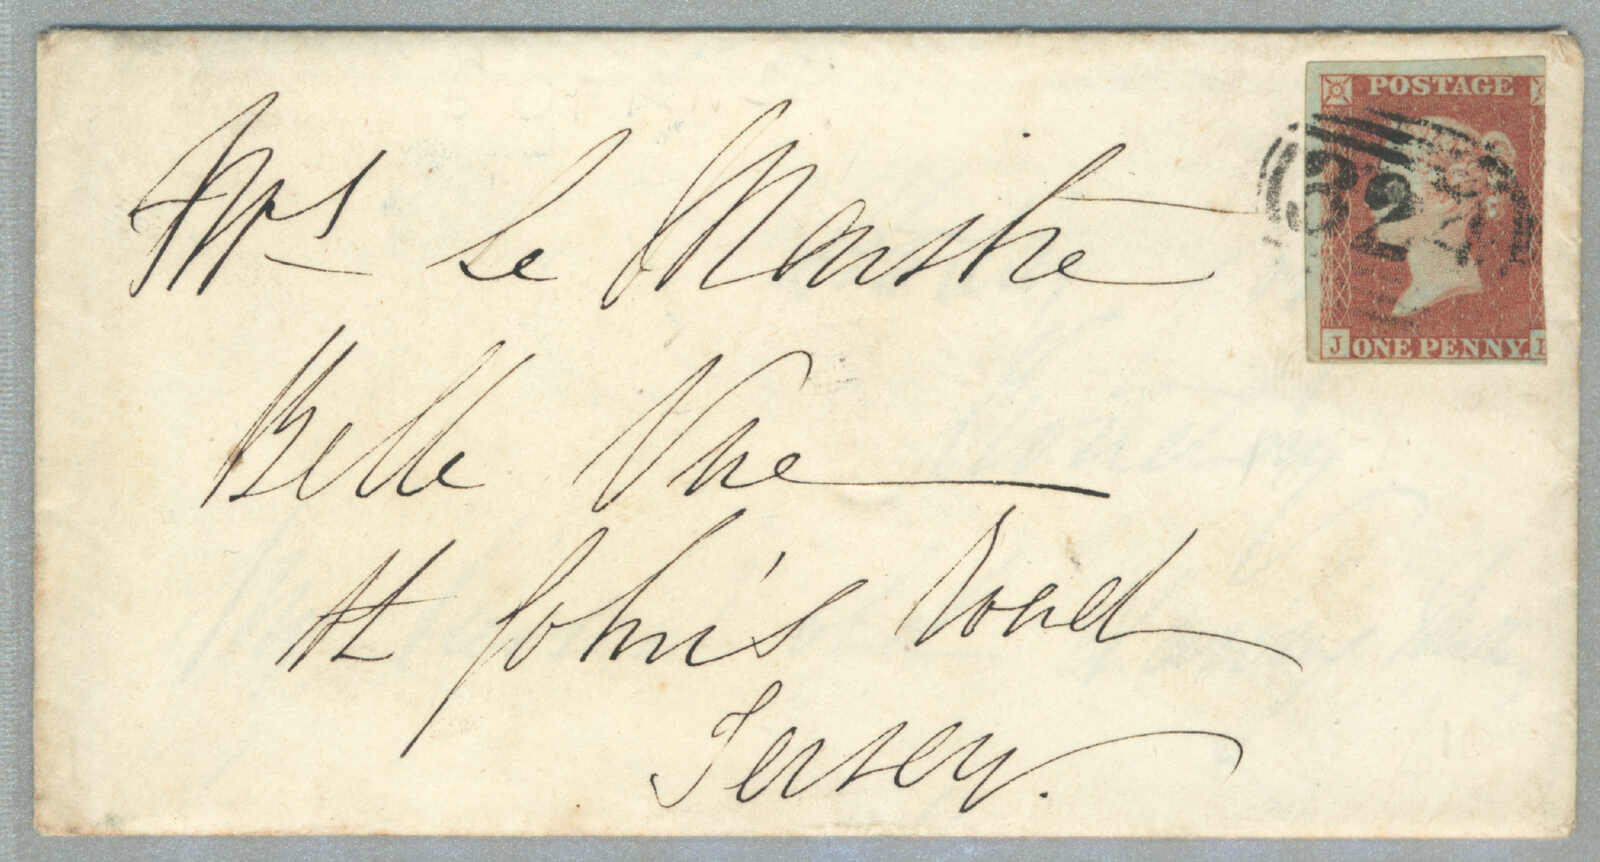 POSTAGE
ONE PENNY.
J
Mrs Le Maistre
Belle Vue
St John's Road
Jersey.